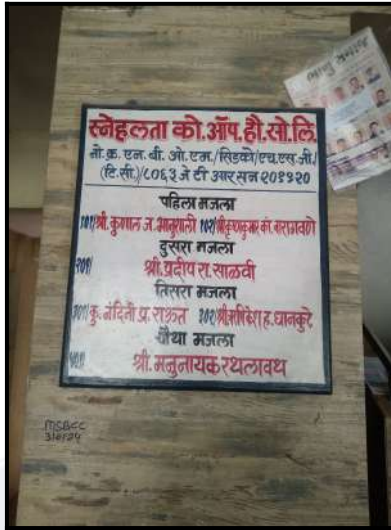 स्नेहलता को.ऑप.हौ.सो.लि.
नो.क्र.एन.बी.ओ.एम./सिडको/एच.एस.जी./
(टि.सी.)/८०६३ जे टी आर सन २०१९२०
पहिला मजला
१०१/श्री. कुणाल ज. भानुशाली १०२/श्री
दुसरा मजला
२०१/ श्री. प्रदीप रा. साळवी
तिसरा मजला
३०१/ कु. नंदिनी प्र. राऊत ३०२/श्री ह. धानकुटे
चौथा मजला
४०१/ श्री. मनुनायक रथलावथ
MSBCC